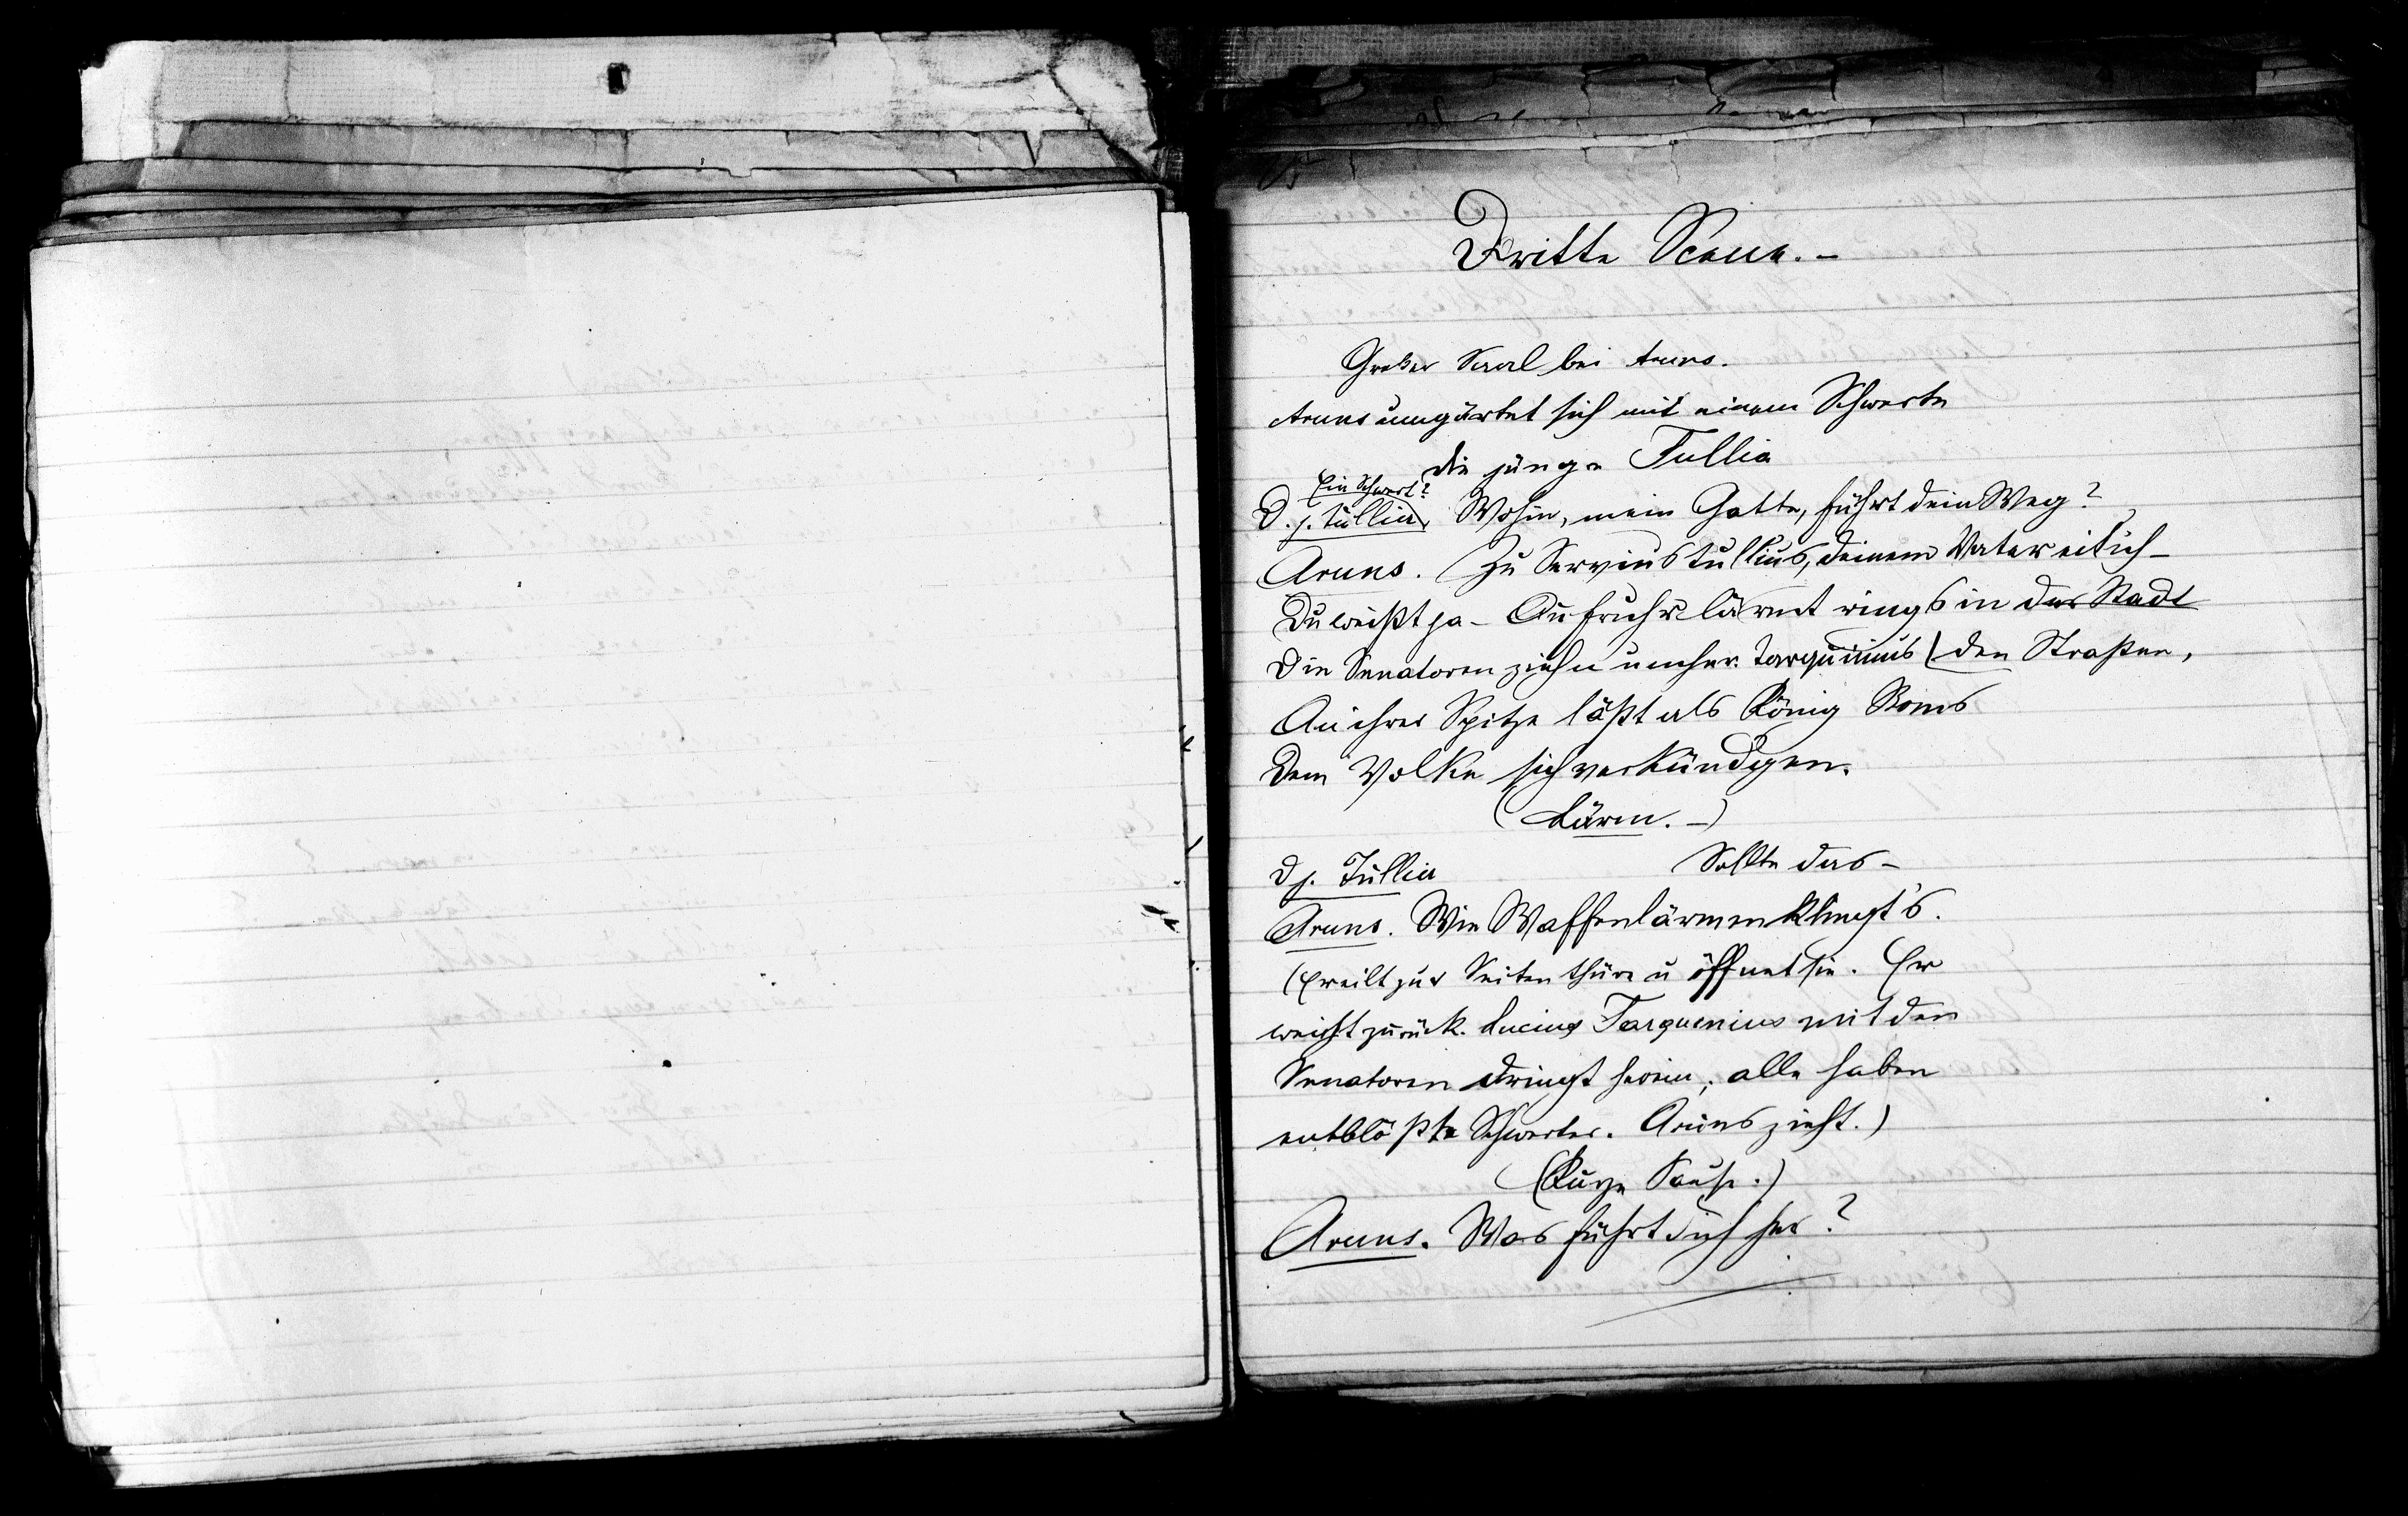 Dritte Scene. –
Großer Saal bei Aruns.
Aruns umgürtet sich mit einem Schwerte
die junge Tullia
Ein Schwert?
D. j. Tullia, Wohin, mein Gatte, führt dein Weg?
Aruns. Zu Servius Tullius, deinem Vater eil ich –
Du weißt ja – Aufruhr lärmt rings in der Stadt
Die Senatoren ziehn umher. Tarquinius | den Straßen,
An ihrer Spitze läßt als König Roms
Dem Volke sich verkündigen.
(Lärm. –)
D j. Tullia Sollte das –
Aruns. Wie Waffenlärmen klingt's.
(Er eilt zur Seitenthüre u öffnet sie. Er
weicht zurück. Lucius Tarquenius mit den
Senatoren dringt herein; alle haben
entblößte Schwerter. Aruns zieht.)
(Kurze Pause.)
Aruns. Was führt dich her?